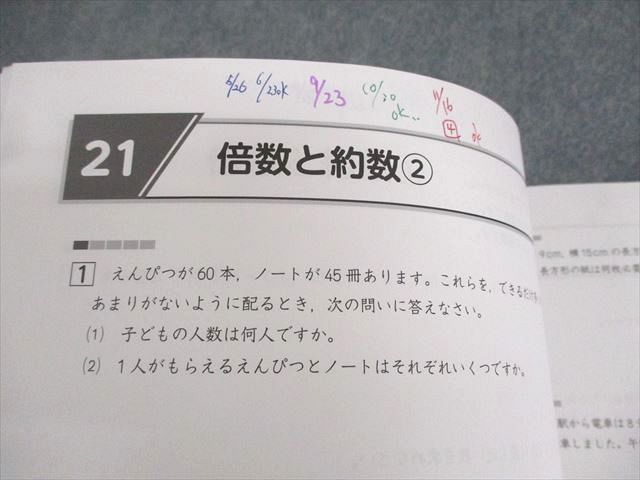 5/26 6/23ok 9/23 10/20 ok 11/16 4 ok
21 倍数と約数②
1 えんぴつが60本，ノートが45冊あります。これらを，できるだけ
あまりがないように配るとき，次の問いに答えなさい。
(1) 子どもの人数は何人ですか。
(2) 1人がもらえるえんぴつとノートはそれぞれいくつですか。
9cm，横15cmの長方
長方形の紙は何枚必要
駅から電車は8分
車しました。午